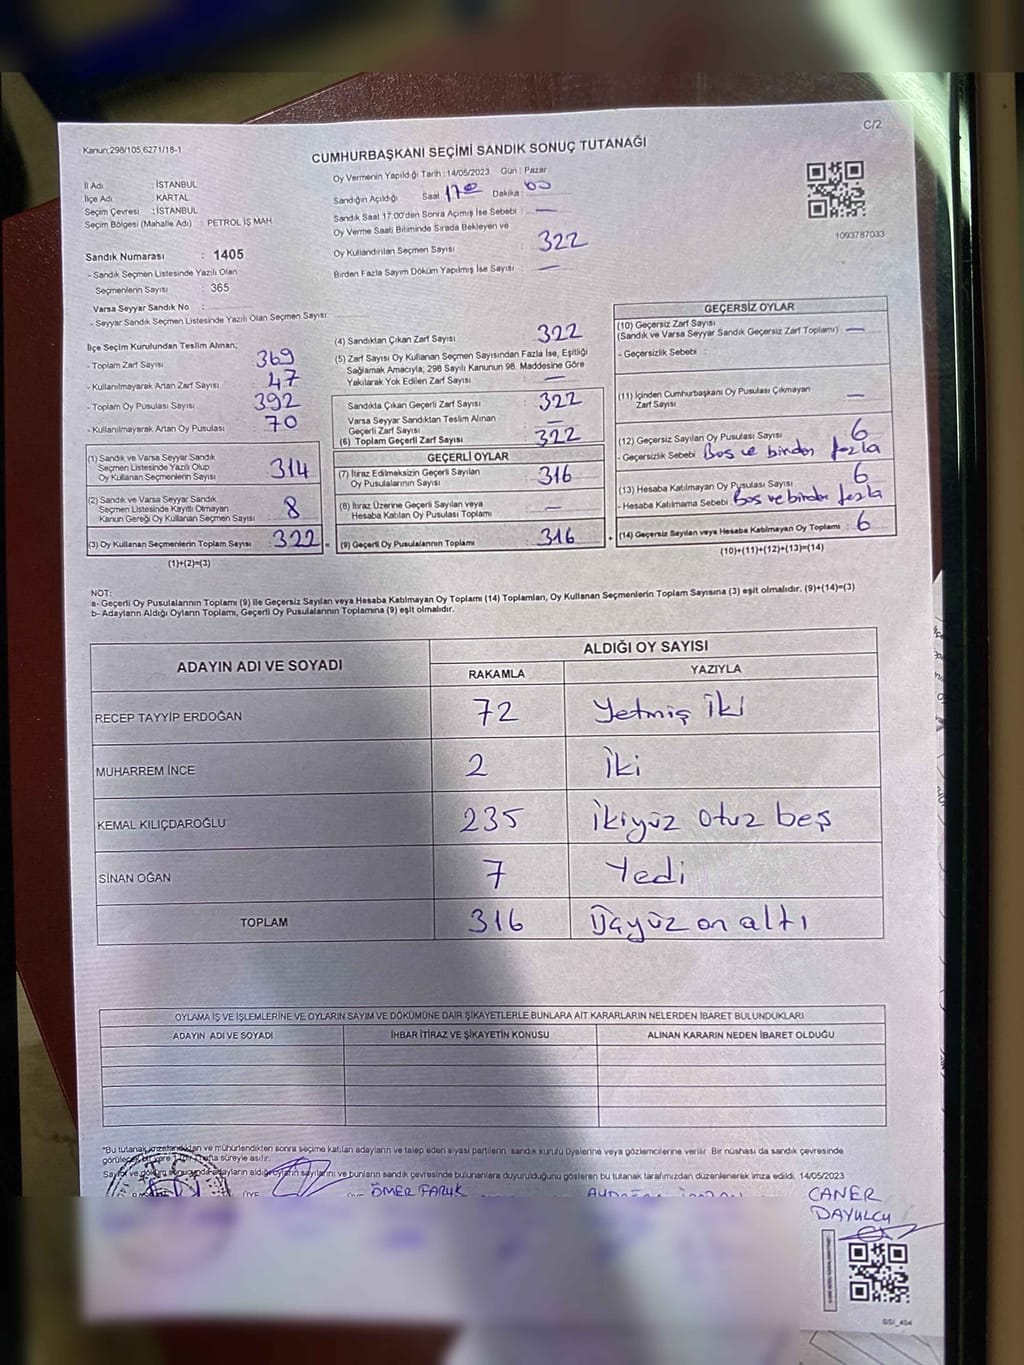 C/2
Kanun,298/105,6271/18-1
CUMHURBAŞKANI SEÇİMİ SANDIK SONUÇ TUTANAĞI
İl Adı : İSTANBUL
İlçe Adı : KARTAL
Seçim Çevresi : İSTANBUL
Seçim Bölgesi (Mahalle Adı) PETROL İŞ MAH
Sandık Numarası : 1405
- Sandık Seçmen Listesinde Yazılı Olan
Seçmenlerin Sayısı : 365
Varsa Seyyar Sandık No :
- Seyyar Sandık Seçmen Listesinde Yazılı Olan Seçmen Sayısı:
Oy Vermenin Yapıldığı Tarih : 14/05/2023 Gün : Pazar
Sandığın Açıldığı Saat 17 00 Dakika : 00
Sandık Saat 17.00'den Sonra Açımış İse Sebebi : —
Oy Verme Saati Bitiminde Sırada Bekleyen ve
Oy Kullandırılan Seçmen Sayısı : 322
Birden Fazla Sayım Döküm Yapılmış İse Sayısı : —
1093787033
İlçe Seçim Kurulundan Teslim Alınan;
- Toplam Zarf Sayısı : 369
- Kullanılmayarak Artan Zarf Sayısı : 47
- Toplam Oy Pusulası Sayısı : 392
- Kullanılmayarak Artan Oy Pusulası : 70
(1) Sandık ve Varsa Seyyar Sandık
Seçmen Listesinde Yazılı Olup
Oy Kullanan Seçmenlerin Sayısı : 314
(2) Sandık ve Varsa Seyyar Sandık
Seçmen Listesinde Kayıtlı Olmayan
Kanun Gereği Oy Kullanan Seçmen Sayısı : 8
(3) Oy Kullanan Seçmenlerin Toplam Sayısı : 322
(1)+(2)=(3)
(4) Sandıktan Çıkan Zarf Sayısı : 322
(5) Zarf Sayısı Oy Kullanan Seçmen Sayısından Fazla İse, Eşitliği
Sağlamak Amacıyla; 298 Sayılı Kanunun 98. Maddesine Göre
Yakılarak Yok Edilen Zarf Sayısı : —
Sandıkta Çıkan Geçerli Zarf Sayısı : 322
Varsa Seyyar Sandıktan Teslim Alınan
Geçerli Zarf Sayısı : —
(6) Toplam Geçerli Zarf Sayısı : 322
GEÇERLİ OYLAR
(7) İtiraz Edilmeksizin Geçerli Sayılan
Oy Pusulalarının Sayısı : 316
(8) İtiraz Üzerine Geçerli Sayılan veya
Hesaba Katılan Oy Pusulası Toplamı : —
(9) Geçerli Oy Pusulalarının Toplamı : 316
GEÇERSİZ OYLAR
(10) Geçersiz Zarf Sayısı
(Sandık ve Varsa Seyyar Sandık Geçersiz Zarf Toplamı) : —
- Geçersizlik Sebebi :
(11) İçinden Cumhurbaşkanı Oy Pusulası Çıkmayan
Zarf Sayısı : —
(12) Geçersiz Sayılan Oy Pusulası Sayısı : 6
- Geçersizlik Sebebi Boş ve birden fazla
(13) Hesaba Katılmayan Oy Pusulası Sayısı : 6
- Hesaba Katılmama Sebebi : Boş ve birden fazla
(14) Geçersiz Sayılan veya Hesaba Katılmayan Oy Toplamı : 6
(10)+(11)+(12)+(13)=(14)
NOT:
a- Geçerli Oy Pusulalarının Toplamı (9) ile Geçersiz Sayılan veya Hesaba Katılmayan Oy Toplamı (14) Toplamları, Oy Kullanan Seçmenlerin Toplam Sayısına (3) eşit olmalıdır. (9)+(14)=(3)
b- Adayların Aldığı Oyların Toplamı, Geçerli Oy Pusulalarının Toplamına (9) eşit olmalıdır.
ADAYIN ADI VE SOYADI
ALDIĞI OY SAYISI
RAKAMLA YAZIYLA
RECEP TAYYİP ERDOĞAN 72 Yetmiş İki
MUHARREM İNCE 2 İki
KEMAL KILIÇDAROĞLU 235 İkiyüz Otuz beş
SİNAN OĞAN 7 Yedi
TOPLAM 316 Üçyüz on altı
OYLAMA İŞ VE İŞLEMLERİNE VE OYLARIN SAYIM VE DÖKÜMÜNE DAİR ŞİKAYETLERLE BUNLARA AİT KARARLARIN NELERDEN İBARET BULUNDUKLARI
ADAYIN ADI VE SOYADI İHBAR İTİRAZ VE ŞİKAYETİN KONUSU ALINAN KARARIN NEDEN İBARET OLDUĞU
*Bu tutanak imzalandıktan ve mühürlendikten sonra seçime katılan adayların ve talep eden siyasi partilerin sandık kurulu üyelerine veya gözlemcilerine verilir. Bir nüshası da sandık çevresinde
görülecek bir yere 1 hafta süreyle asılır.
Sayım ve döküm sonucunda adayların aldığı oyların sayılarını ve bunların sandık çevresinde bulunanlara duyurulduğunu gösteren bu tutanak tarafımızdan düzenlenerek imza edildi. 14/05/2023
ÖMER FARUK
CANER
DAYULCU
SSI_454